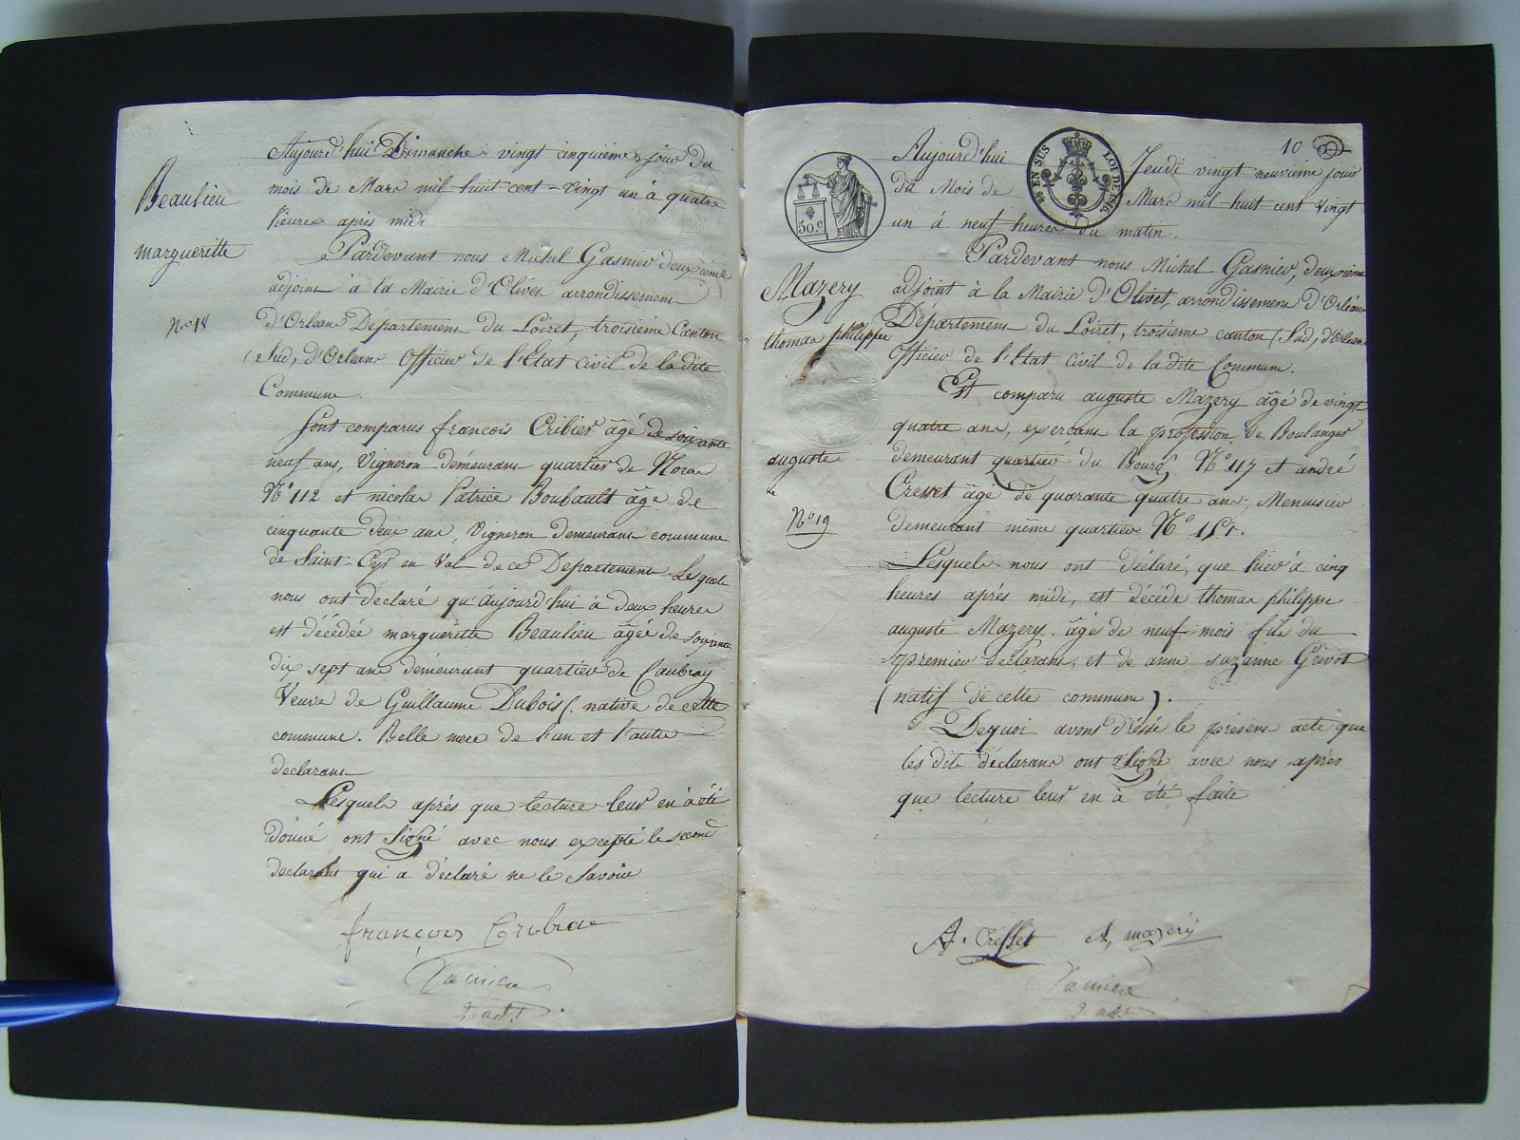 Beaulieu
margueritte
No 18
Aujourd'hui Dimanche vingt cinquième jour du
mois de Mars mil huit cent vingt un à quatre
heures après midi
Pardevant nous Michel Gasnier deuxième
adjoint à la Mairie d'Olivet arrondissement
d'Orléans Département du Loiret, troisième Canton
(Sud, d'Orléans Officier de l'Etat Civil de la dite
Commune
Sont comparus françois Cribier âgé de soixante
neuf ans, Vigneron demeurant quartier de
No 112 et nicolas Patrice Boubault âgé de
cinquante deux ans, Vigneron demeurant commune
de Saint Cyr en Val de ce Departement Lesquels
nous ont declaré qu'aujourd'hui à deux heures
est décédée margueritte Beaulieu âgée de soixante
dix sept ans demeurant quartier de Caubray
Veuve de Guillaume Dubois (native de cette
commune. Belle mere de l'un et l'autre
declarans
Lesquels après que lecture leur en à été
donné ont signé avec nous excepté le second
declarant qui a déclaré ne le Savoir
françois Cribier
2 adt
10
50 c
EN SUS
LOI DE 1816
Mazery
thomas philippe
auguste
No 19
Aujourd'hui Jeudi vingt neuvième jour
du Mois de Mars mil huit cent vingt
un à neuf heures du matin.
Pardevant nous Michel Gasnier, deuxième
adjoint à la Mairie d'Olivet, arrondissement d'Orléans
Département du Loiret, troisième canton (Sud, d'Orléans
Officier de l'Etat Civil de la dite Commune.
Est comparu auguste Mazery âgé de vingt
quatre ans, exerçans la profession de Boulanger
demeurant quartier du Bourg No 117 et andré
Cresset âgé de quarante quatre ans, Menuisier
demeurant même quartier No 151.
Lesquels nous ont déclaré, que hier à cinq
heures après midi, est décédé thomas philippe
auguste Mazery âgé de neuf mois fils du
premier declarant, et de anne suzanne Grivot
(natif de cette commune).
Dequoi avons dressé le présent acte que
les dits déclarans ont signé avec nous après
que lecture leur en à été faite
A. Cresset A, mazery
2 adt